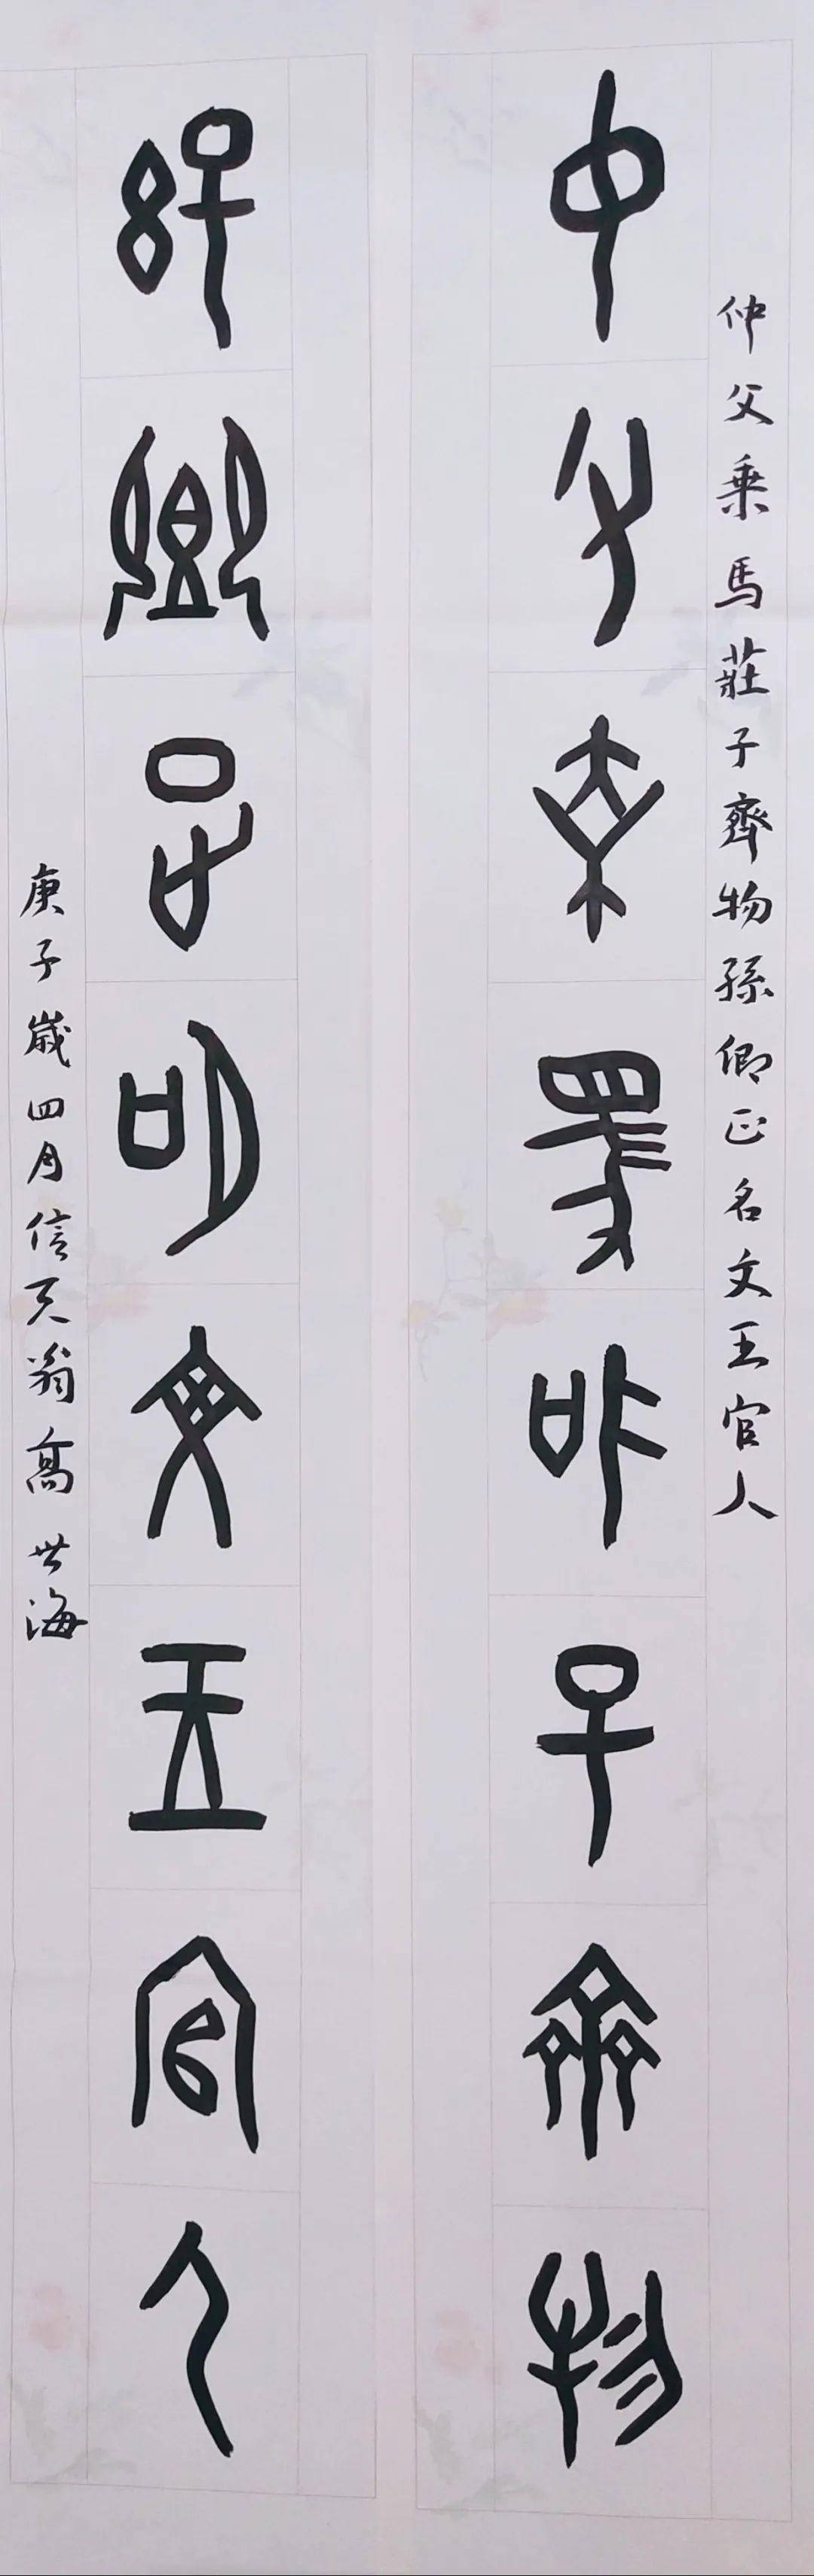 仲父乘馬莊子齊物孫卿正名文王官人
中父乘馬莊子齊物
孫卿正名文王官人
庚子歲四月信天翁高世海